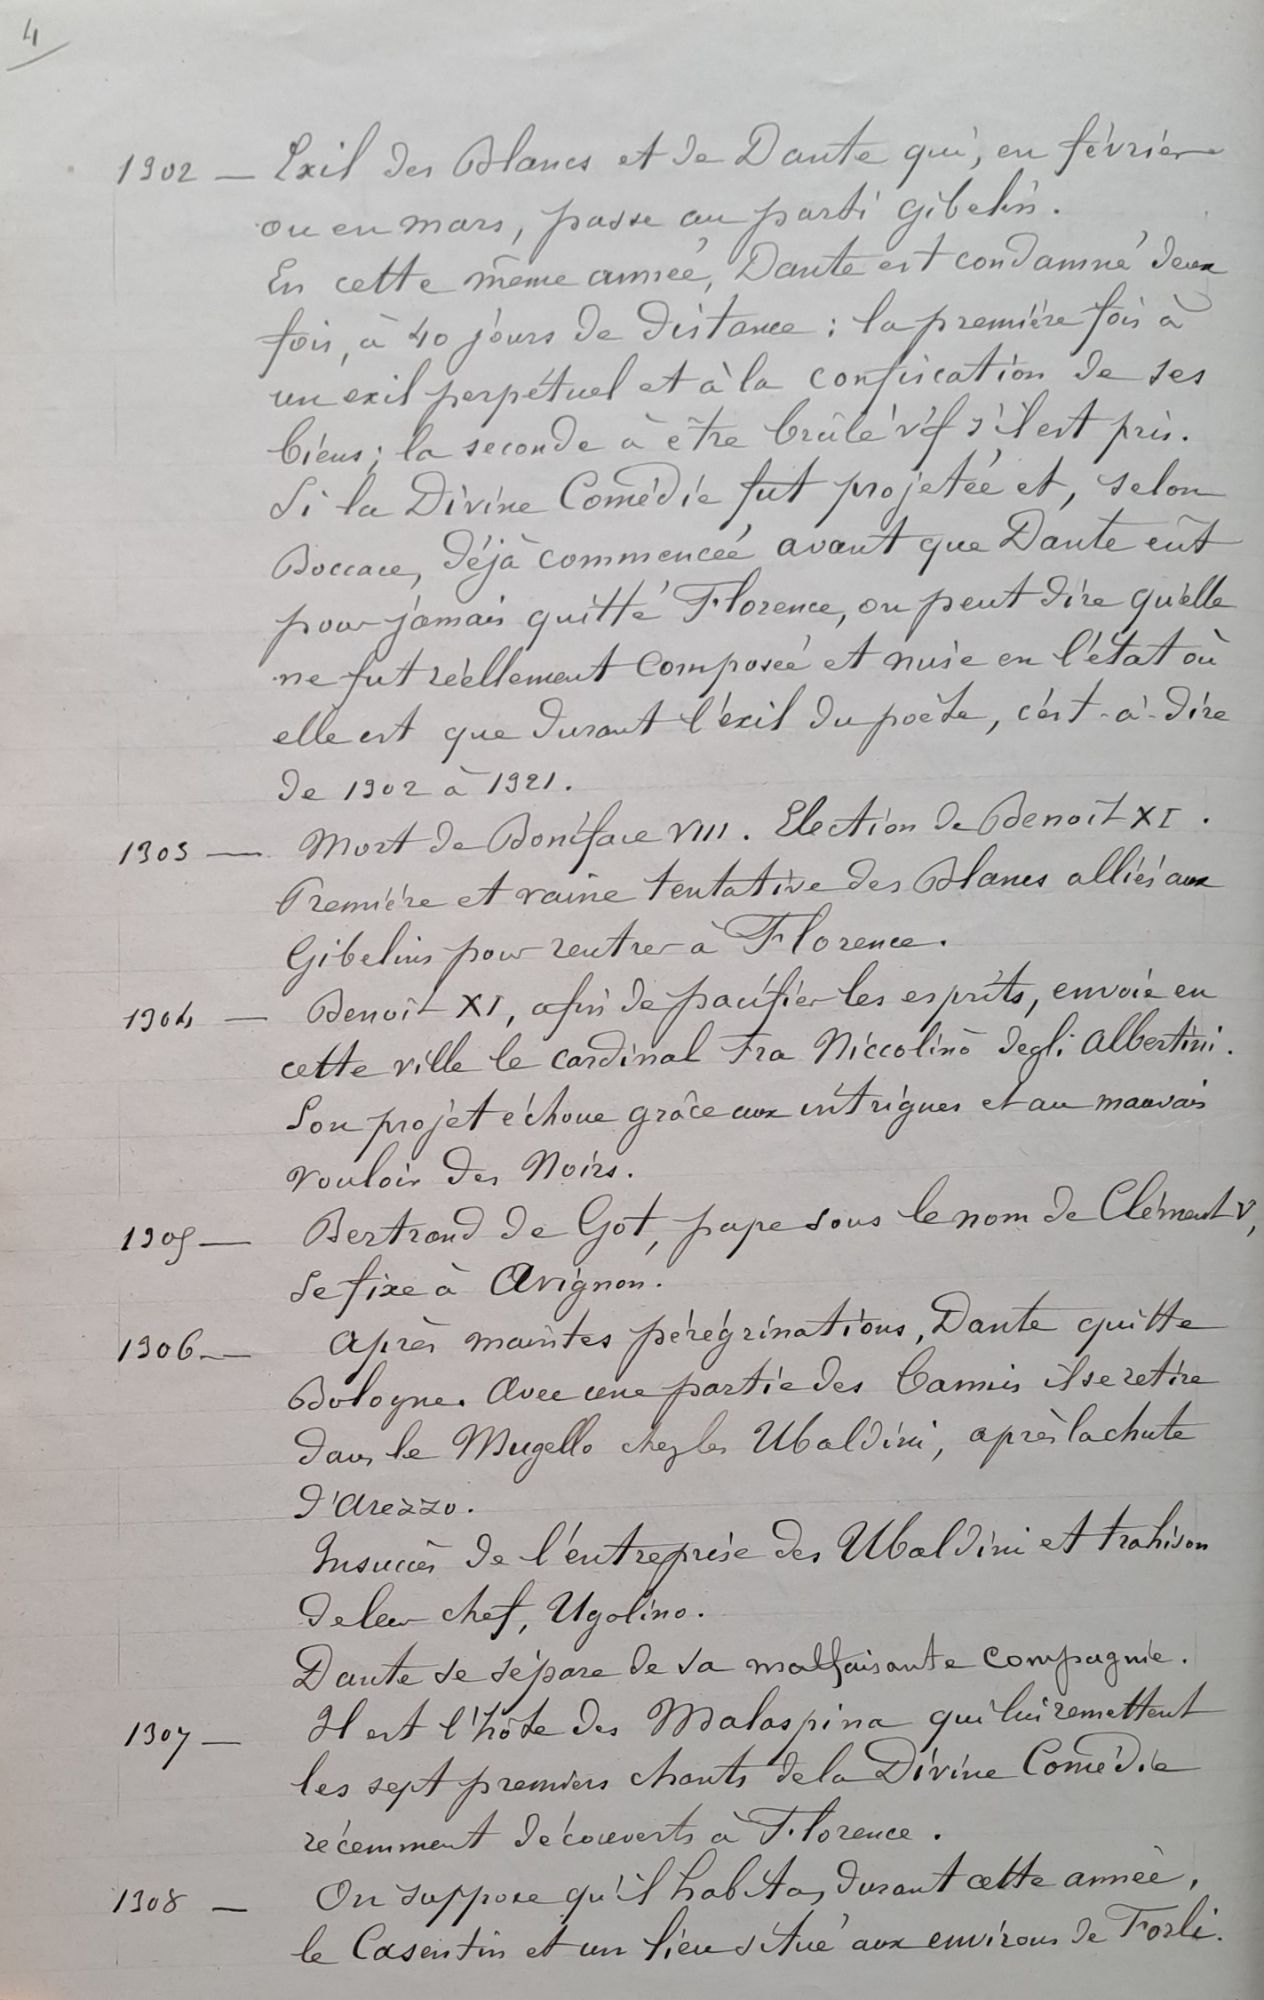 4
1302 — Exil des Blancs et de Dante qui, en février
ou en mars, passe au parti gibelin.
En cette même année, Dante est condamné deux
fois, à 40 jours de distance : la première fois à
un exil perpétuel et à la confiscation de ses
biens ; la seconde à être brûlé vif s'il est pris.
Si la Divine Comédie fut projetée et, selon
Boccace, déjà commencée avant que Dante eût
pour jamais quitté Florence, on peut dire qu'elle
ne fut réellement composée et mise en l'état où
elle est que durant l'exil du poète, c'est-à-dire
de 1302 à 1321.
1303 — Mort de Boniface VIII. Election de Benoît XI.
Première et vaine tentative des Blancs alliés aux
Gibelins pour rentrer à Florence.
1304 — Benoît XI, afin de pacifier les esprits, envoie en
cette ville le cardinal Fra Niccolino degli Albertini.
Son projet échoue grâce aux intrigues et au mauvais
vouloir des Noirs.
1305 — Bertrand de Got, pape sous le nom de Clément V,
se fixe à Avignon.
1306 — Après maintes pérégrinations, Dante quitte
Bologne. Avec une partie des bannis il se retire
dans le Mugello chez les Ubaldini, après la chute
d'Arezzo.
Insuccès de l'entreprise des Ubaldini et trahison
de leur chef, Ugolino.
Dante se sépare de sa malfaisante compagnie.
1307 — Il est l'hôte des Malaspina qui lui remettent
les sept premiers chants de la Divine Comédie
récemment découverts à Florence.
1308 — On suppose qu'il habita, durant cette année,
le Casentin et un lieu situé aux environs de Forli.